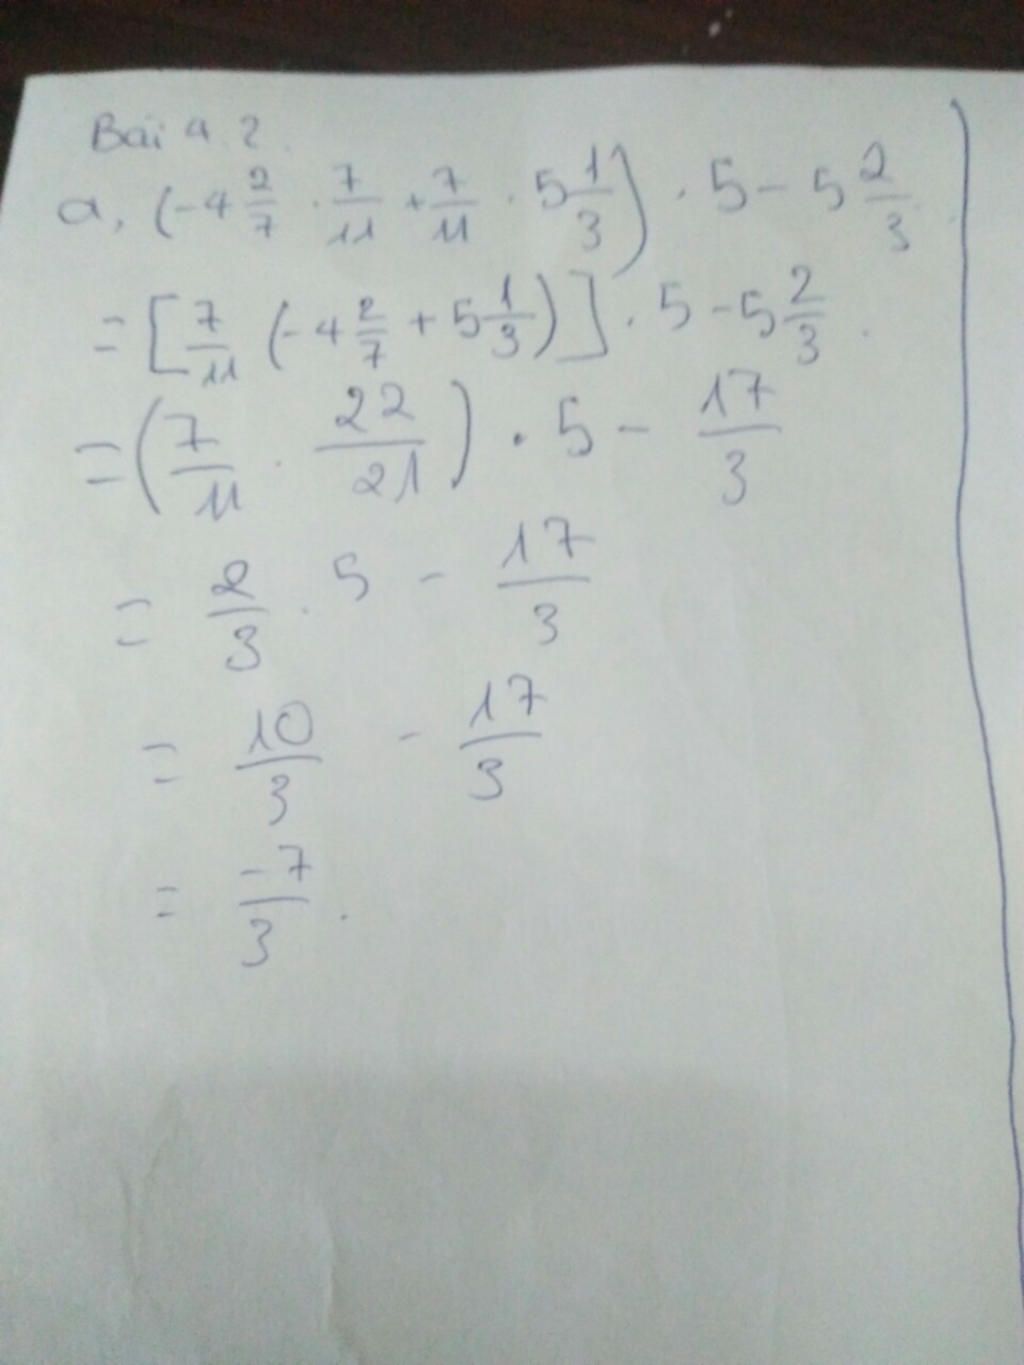 Bài 4.2.
a, (-4 2/7 . 7/11 + 7/11 . 5 1/3) . 5 - 5 2/3
= [7/11 (-4 2/7 + 5 1/3)] . 5 - 5 2/3.
= (7/11 . 22/21) . 5 - 17/3
= 2/3 . 5 - 17/3
= 10/3 - 17/3
= -7/3.